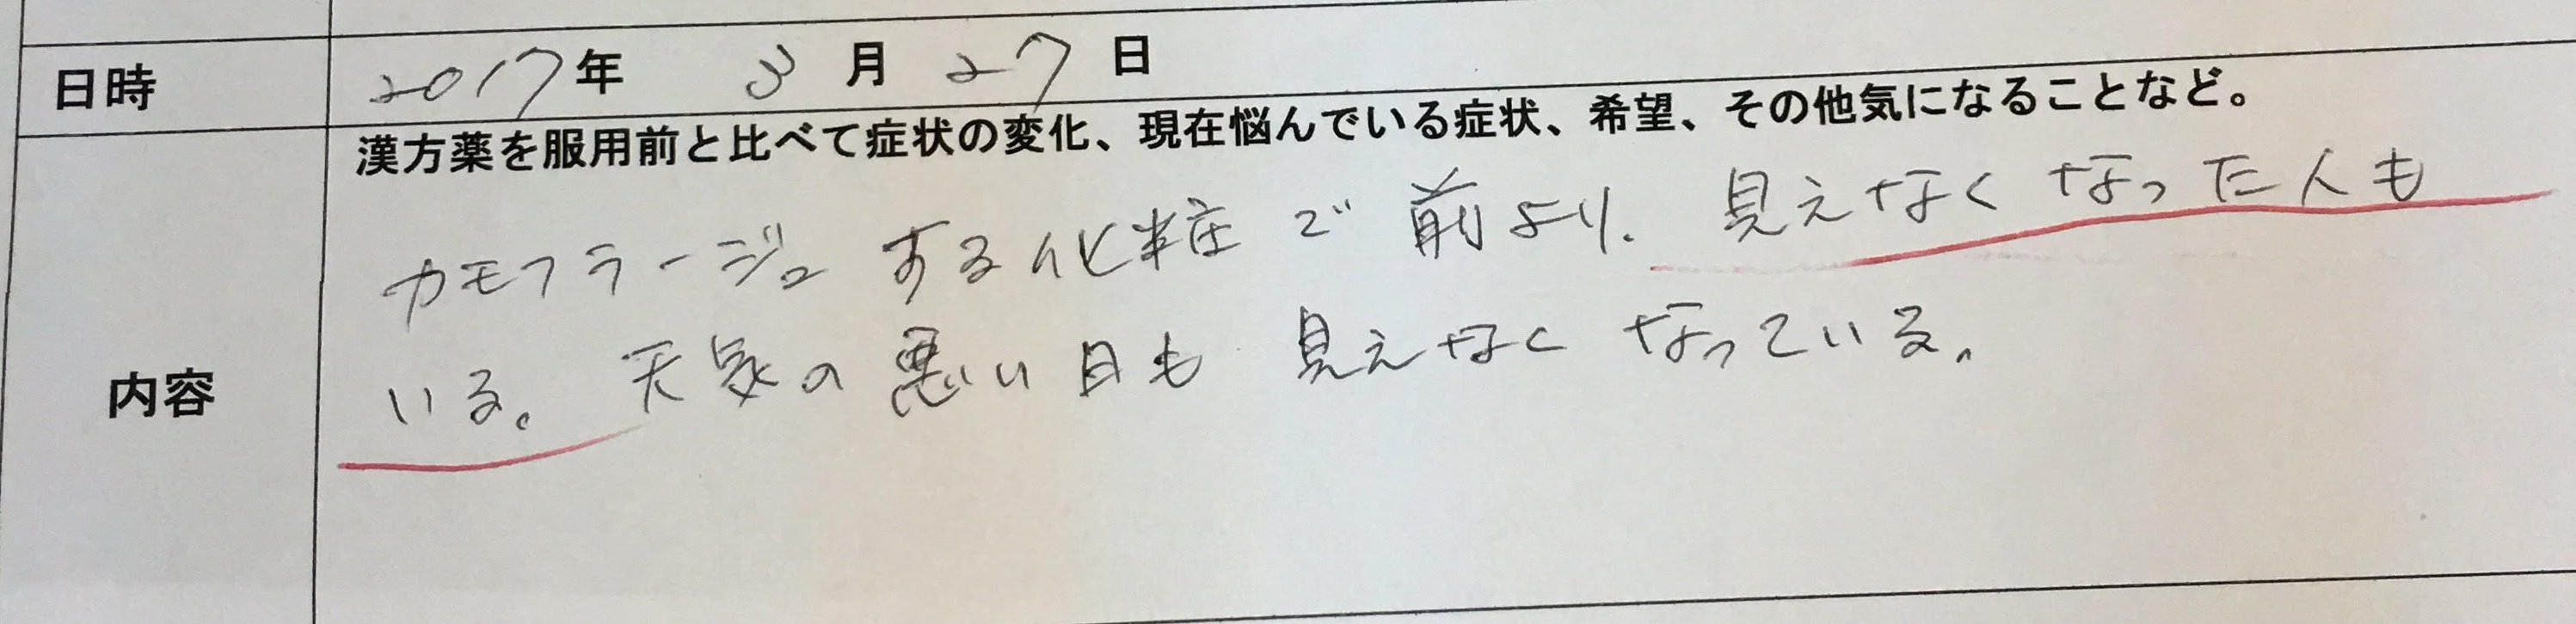 日時 2017年 3月 27日
漢方薬を服用前と比べて症状の変化、現在悩んでいる症状、希望、その他気になることなど。
カモフラージュする化粧で前より、見えなくなった人も
いる。天気の悪い日も見えなくなっている。
内容